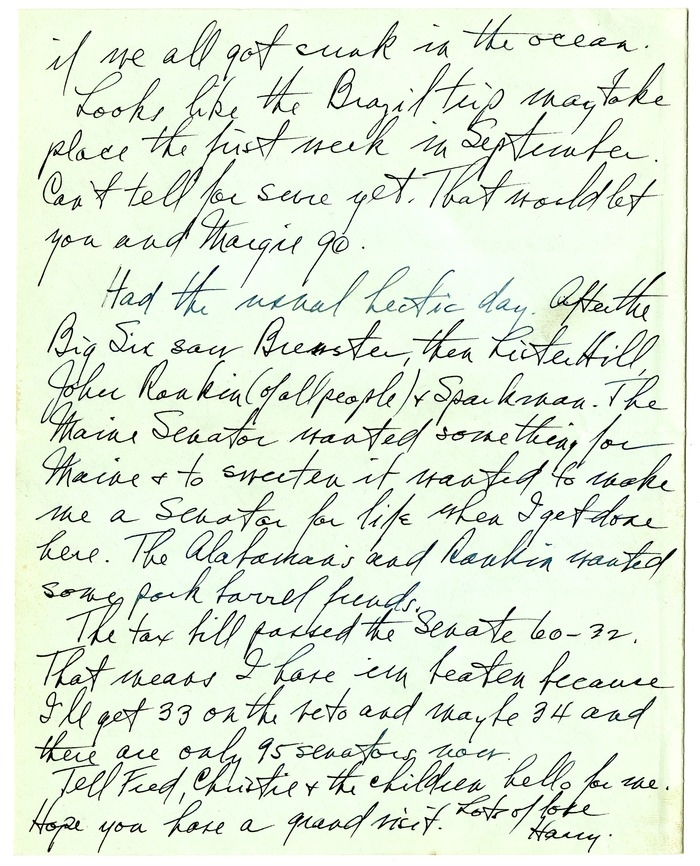 if we all got sunk in the ocean.
Looks like the Brazil trip may take
place the first week in September.
Can't tell for sure yet. That would let
you and Margie go.
Had the usual hectic day. After the
Big Six saw Brewster, then Lister Hill,
John Rankin (of all people) & Sparkman. The
Maine Senator wanted something for
Maine & to sweeten it wanted to make
me a Senator for life when I get done
here. The Alabamans and Rankin wanted
some pork barrel funds.
The tax bill passed the Senate 60-32.
That means I have 'em beaten because
I'll get 33 on the veto and maybe 34 and
there are only 95 senators now.
Tell Fred, Christie & the children hello for me.
Hope you have a grand visit. Lots of love
Harry.